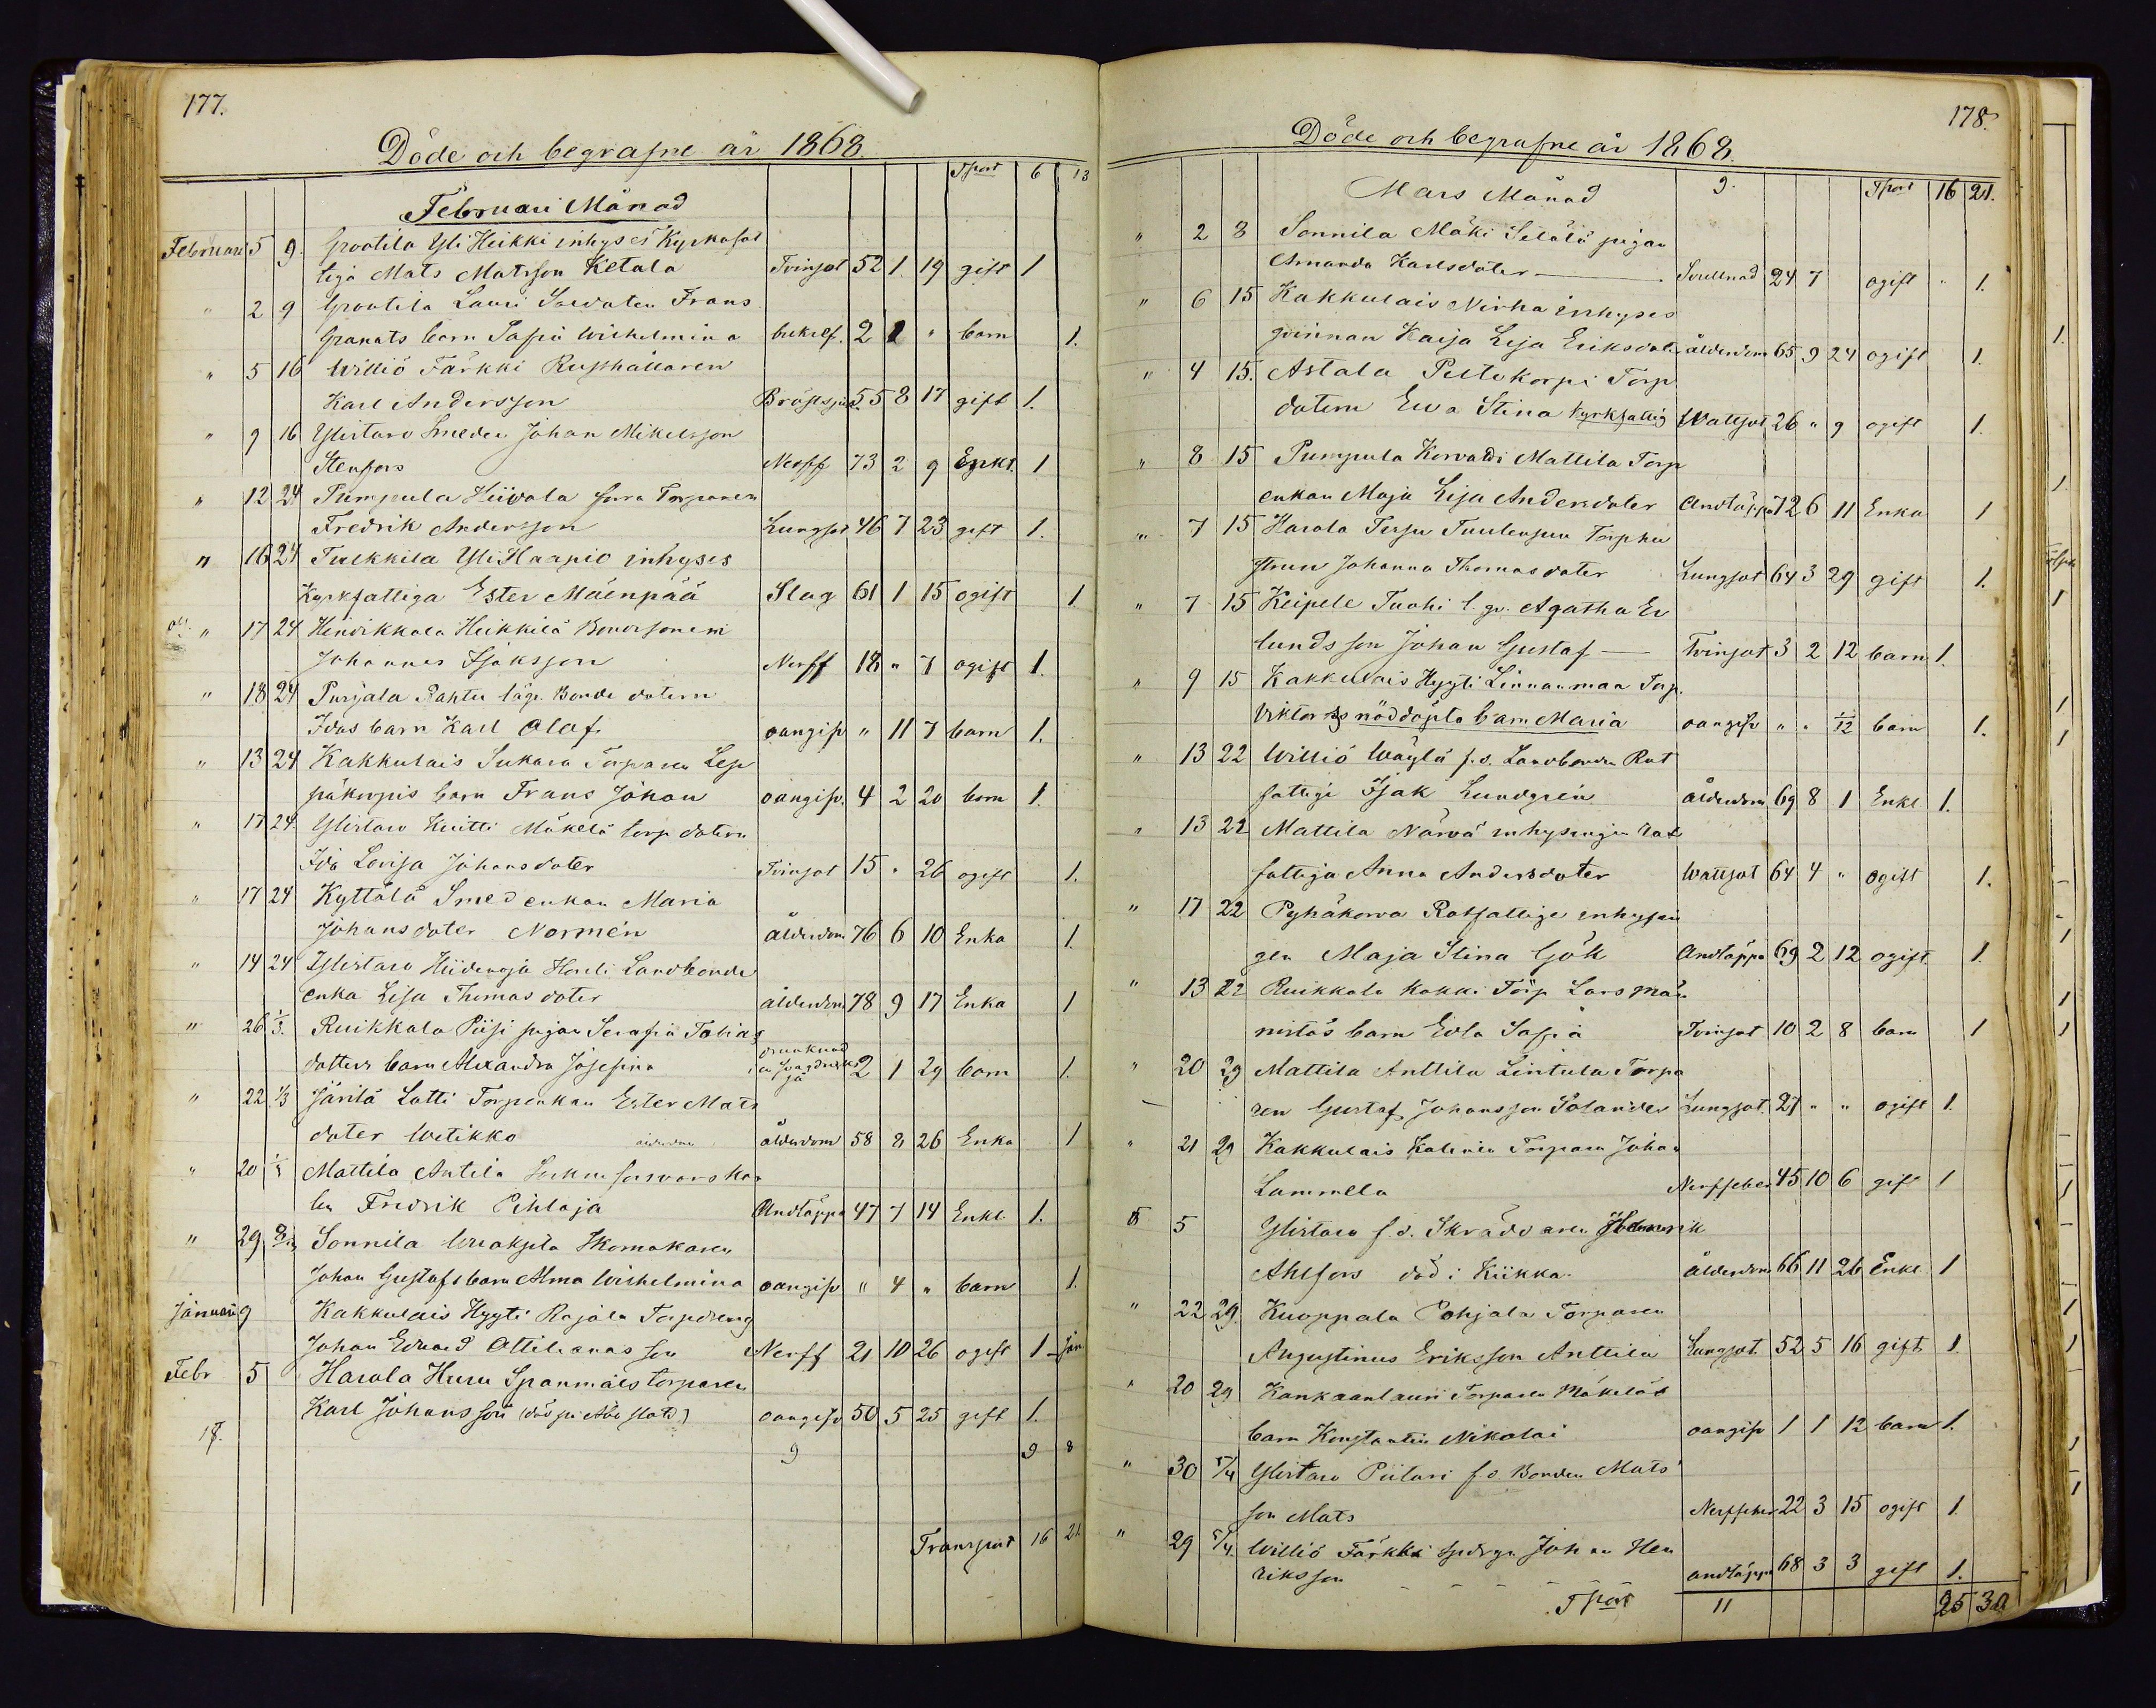 177.
Döde och begrafne år 1868.
Tsport 6 13
Februari Månad
Februari 5 9. Grootila Yli Heikki inhyses Kyrkofat
tiga Mats Matsson Ketala Tvinsot 52 1 19 gift 1
" 2 9 Grootila Lauri Soldaten Frans
Granats barn Sofia Wilhelmina 2 1 " barn 1.
" 5 16 Williö Färkki Rusthållaren
Karl Andersson Bröstsju. 55 8 17 gift 1.
" 9 16 Ylistaro Smeden Johan Mikelsson
Stenfors Nerff 73 2 9 Enkl. 1
" 12 24 Pumpula Hiivola Torparen
Fredrik Andersson Lungsot 46 7 23 gift 1.
" 16 24 Tulkkila Yli Haapio inhyses
Kyrkfattiga Ester Mäenpää Slag 61 1 15 ogift 1
" 17 24 Henrikkala Heikkilä Bondsonen
Johannes Isaksson Nerff 18 " 7 ogift 1.
" 18 24 Purjala Rahtu läg. Bonde dotern
Idas barn Karl Olof oangifv " 11 7 barn 1.
" 13 24 Kakkulais Sukara Torparen Lep
päkorpis barn Frans Johan oangifv. 4 2 20 barn 1.
" 17 24. Ylistaro Knitti Mäkelä torp dotern
Ida Lovisa Johansdoter Tvinsot 15 " 26 ogift 1.
" 17 24 Kyttälä Smed enkan Maria
Johans doter Normén ålderdom 76 6 10 Enka 1
" 14 24 Ylistaro Hiidenoja Landbonde
enka Lisa Thomas doter ålderdom 78 9 17 Enka 1
" 26 1/3. Ruikkala Piisi pigan Serafia Tobias
dotters barn Alexandra Josefina drunknad 2 1 29 barn 1.
" 22 1/3 Järilä Lotti Torpenkan Ester Mats
doter Wetikko ålderdom 58 8 26 Enka 1
" 20 1/3 Mattila Antila
len Fredrik Pihlaja Andtäppa 47 7 14 Enkl. 1.
" 29 8/3 Sonnila Skomakaren
Johan Gustafs barn Alma Wilhelmina oangifv " 4 " barn 1.
Januari 9 Kakkulais Hyyti Rajala Torpdreng
Johan Edvard Ottilianas son Nerff 21 10 26 ogift 1 Jan
Febr 5 Harola Huru Spanmäes torparen
Karl Johansson (död på Åbo stad) oangifv 50 5 25 gift 1.
17. 9 9 8
Transport 16 21
178.
Döde och begrafne år 1868.
Mars Månad 9. Tsport 16 21.
" 2 8 Sonnila Mäki Selälä pigan
Amanda Karlsdoter Svullnad 24 7 ogift " 1.
" 6 15 Kakkulais Nirha inhyses
qvinnan Kaisa Lisa Eriksdoter ålderdom 65 9 24 ogift 1.
" 4 15. Astala Peltokorpi Torp
dotern Eva Stina Kyrkfattig Wattsot 26 " 9 ogift 1.
" 8 15 Pumpula Korvaldi Mattila Torp
enkan Maja Lisa Andersdoter Andtäppa 72 6 11 Enka 1
" 7 15 Harola Tersu Tuulensuu Torphu
strun Johanna Thomasdoter Lungsot 64 3 29 gift 1.
" 7 15 Keipele Tuohi l. qv. Agatha Er
lunds son Johan Gustaf Tvinsot 3 2 12 barn 1.
" 9 15 Kakkulais Hyyti Linnanmaa Torp.
Viktors nöddöpta barn Maria oangifv " " 1/12 barn 1.
" 13 22 Williö Wäylä f.d. Landbonden Rot
fattige Isak Lundgrén ålderdom 69 8 1 Enkl 1.
" 13 22 Mattila Närvä inhysingen Rot
fattiga Anna Andersdoter Wattsot 64 4 " ogift 1.
" 17 22 Pyhäkorva Rotfattige inhysin
gen Maja Stina Gök Andtäppa 69 2 12 ogift 1.
" 13 22 Ruikkala Kokki Torp Lars Män
nistös barn Edla Sofia Tvinsot 10 2 8 barn 1
" 20 29 Mattila Anttila Lintula Torpa
ren Gustaf Johansson Solander Lungsot. 27 " " ogift 1.
" 21 29 Kakkulais Kalinin Torparen Johan
Lammela Nerffeber 45 10 6 gift 1
5 Ylistaro f.d. Skräddaren Henrik
Ahlfors död i Kiikka ålderdom 66 11 26 Enkl 1
" 22 29. Kuoppala Pohjala Torparen
Augustinus Eriksson Anttila Lungsot. 52 5 16 gift 1.
" 20 29 Kankaanlauri Torparen Mäkeläs
barn Konstantin Nikolai oangifv 1 1 12 barn 1.
" 30 5/4 Ylistaro Piilari f.d. Bonden Mats
son Mats Nerffeber 22 3 15 ogift 1
" 29 5/4. Williö Färkki Johan Hen
riksson andtäppa 68 3 3 gift 1.
Tsport 11 25 30